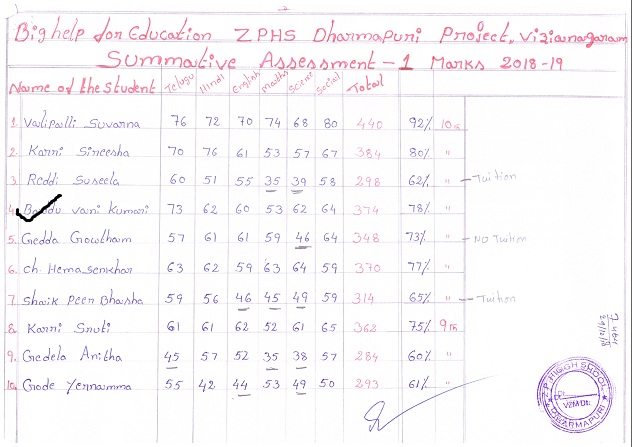 Bighelp for Education ZPHS Dharmapuri Project, Vizianagaram
Summative Assessment - 1 Marks 2018-19
Name of the student Telugu Hindi English Maths Science Social Total
1. Valipalli Suvarna 76 72 70 74 68 80 440 92% 10th
2. Karni Sireesha 70 76 61 53 57 67 384 80% "
3. Reddi Suseela 60 51 55 35 39 58 298 62% " - Tuition
4. Bandu Vani Kumari 73 62 60 53 62 64 374 78% "
5. Gedda Gowtham 57 61 61 59 46 64 348 73% " - No Tuition
6. Ch. Hemasenkhar 63 62 59 63 64 59 370 77% "
7. Shaik Peer Bhasha 59 56 46 45 49 59 314 65% " - Tuition
8. Karni Sruti 61 61 62 52 61 65 362 75% 9th
9. Gedela Anitha 45 57 52 35 38 57 284 60% "
10. Gode Yernamma 55 42 44 53 49 50 293 61% "
Z.P. HIGH SHOOL
VZM Dt.
DHARMAPURI